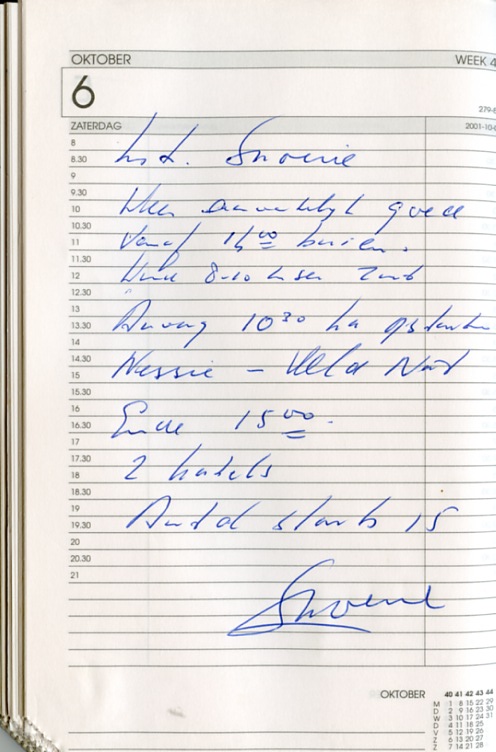 OKTOBER WEEK 4
6
279-8
ZATERDAG 2001-10-0
8
8.30 Inst.
9
9.30
10 Weer aanvankelijk goed
10.30
11 Vanaf 14 00 buien.
11.30
12 Wind 8-10 knsen
12.30
13
13.30 Anvang 10 30 ha opstarten
14
14.30
15 Nessie - Veld Nat
15.30
16
16.30 Einde 15 00.
17
17.30
18 2 kabels
18.30
19
19.30 Aantal starts 15
20
20.30
21
OKTOBER 40 41 42 43 44
M 1 8 15 22 29
D 2 9 16 23 30
W 3 10 17 24 31
D 4 11 18 25
V 5 12 19 26
Z 6 13 20 27
Z 7 14 21 28